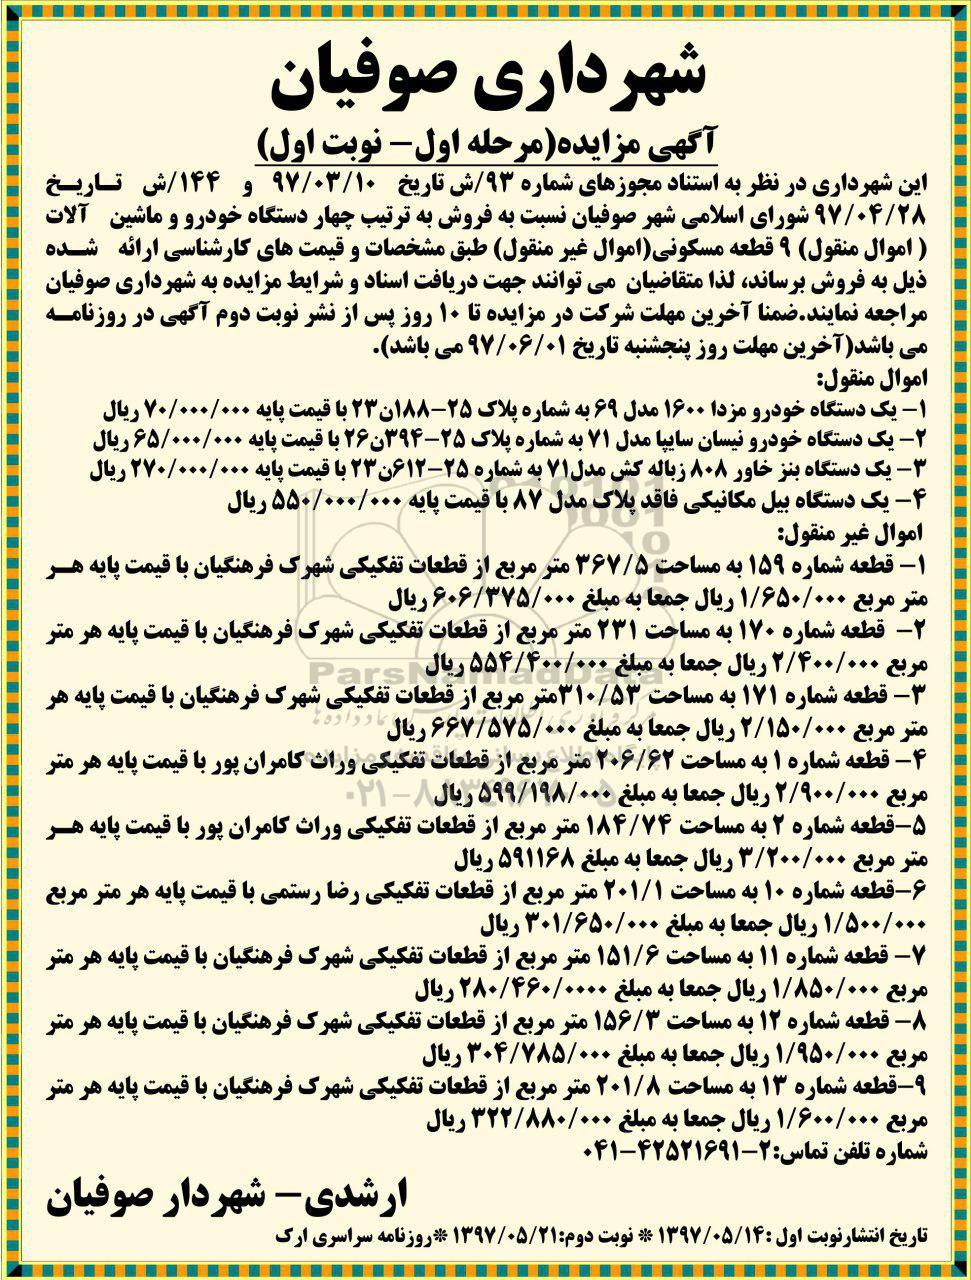 شهرداری صوفیان
آگهی مزایده(مرحله اول- نوبت اول)
این شهرداری در نظر به استناد مجوزهای شماره ۹۳/ش تاریخ ۹۷/۰۳/۱۰ و ۱۴۴/ش تاریخ
۹۷/۰۴/۲۸ شورای اسلامی شهر صوفیان نسبت به فروش به ترتیب چهار دستگاه خودرو و ماشین آلات
( اموال منقول) ۹ قطعه مسکونی(اموال غیر منقول) طبق مشخصات و قیمت های کارشناسی ارائه شده
ذیل به فروش برساند، لذا متقاضیان می توانند جهت دریافت اسناد و شرایط مزایده به شهرداری صوفیان
مراجعه نمایند.ضمنا آخرین مهلت شرکت در مزایده تا ۱۰ روز پس از نشر نوبت دوم آگهی در روزنامه
می باشد(آخرین مهلت روز پنجشنبه تاریخ ۹۷/۰۶/۰۱ می باشد).
اموال منقول:
۱- یک دستگاه خودرو مزدا ۱۶۰۰ مدل ۶۹ به شماره پلاک ۲۵-۱۸۸ن۲۳ با قیمت پایه ۷۰/۰۰۰/۰۰۰ ریال
۲- یک دستگاه خودرو نیسان سایپا مدل ۷۱ به شماره پلاک ۲۵-۳۹۴ن۲۶ با قیمت پایه ۶۵/۰۰۰/۰۰۰ ریال
۳- یک دستگاه بنز خاور ۸۰۸ زباله کش مدل۷۱ به شماره ۲۵-۶۱۲ن۲۳ با قیمت پایه ۲۷۰/۰۰۰/۰۰۰ ریال
۴- یک دستگاه بیل مکانیکی فاقد پلاک مدل ۸۷ با قیمت پایه ۵۵۰/۰۰۰/۰۰۰ ریال
اموال غیر منقول:
۱- قطعه شماره ۱۵۹ به مساحت ۳۶۷/۵ متر مربع از قطعات تفکیکی شهرک فرهنگیان با قیمت پایه هر
متر مربع ۱/۶۵۰/۰۰۰ ریال جمعا به مبلغ ۶۰۶/۳۷۵/۰۰۰ ریال
۲- قطعه شماره ۱۷۰ به مساحت ۲۳۱ متر مربع از قطعات تفکیکی شهرک فرهنگیان با قیمت پایه هر متر
مربع ۲/۴۰۰/۰۰۰ ریال جمعا به مبلغ ۵۵۴/۴۰۰/۰۰۰ ریال
۳- قطعه شماره ۱۷۱ به مساحت ۳۱۰/۵۳متر مربع از قطعات تفکیکی شهرک فرهنگیان با قیمت پایه هر
متر مربع ۲/۱۵۰/۰۰۰ ریال جمعا به مبلغ ۶۶۷/۵۷۵/۰۰۰ ریال
۴- قطعه شماره ۱ به مساحت ۲۰۶/۶۲ متر مربع از قطعات تفکیکی وراث کامران پور با قیمت پایه هر متر
مربع ۲/۹۰۰/۰۰۰ ریال جمعا به مبلغ ۵۹۹/۱۹۸/۰۰۰ ریال
۵-قطعه شماره ۲ به مساحت ۱۸۴/۷۴ متر مربع از قطعات تفکیکی وراث کامران پور با قیمت پایه هر
متر مربع ۳/۲۰۰/۰۰۰ ریال جمعا به مبلغ ۵۹۱۱۶۸ ریال
۶-قطعه شماره ۱۰ به مساحت ۲۰۱/۱ متر مربع از قطعات تفکیکی رضا رستمی با قیمت پایه هر متر مربع
۱/۵۰۰/۰۰۰ ریال جمعا به مبلغ ۳۰۱/۶۵۰/۰۰۰ ریال
۷- قطعه شماره ۱۱ به مساحت ۱۵۱/۶ متر مربع از قطعات تفکیکی شهرک فرهنگیان با قیمت پایه هر متر
مربع ۱/۸۵۰/۰۰۰ ریال جمعا به مبلغ ۲۸۰/۴۶۰/۰۰۰۰ ریال
۸- قطعه شماره ۱۲ به مساحت ۱۵۶/۳ متر مربع از قطعات تفکیکی شهرک فرهنگیان با قیمت پایه هر متر
مربع ۱/۹۵۰/۰۰۰ ریال جمعا به مبلغ ۳۰۴/۷۸۵/۰۰۰ ریال
۹-قطعه شماره ۱۳ به مساحت ۲۰۱/۸ متر مربع از قطعات تفکیکی شهرک فرهنگیان با قیمت پایه هر متر
مربع ۱/۶۰۰/۰۰۰ ریال جمعا به مبلغ ۳۲۲/۸۸۰/۰۰۰ ریال
شماره تلفن تماس:۲-۴۲۵۲۱۶۹۱-۰۴۱
ارشدی- شهردار صوفیان
تاریخ انتشارنوبت اول :۱۳۹۷/۰۵/۱۴ * نوبت دوم:۱۳۹۷/۰۵/۲۱ *روزنامه سراسری ارک
ParsNamadData